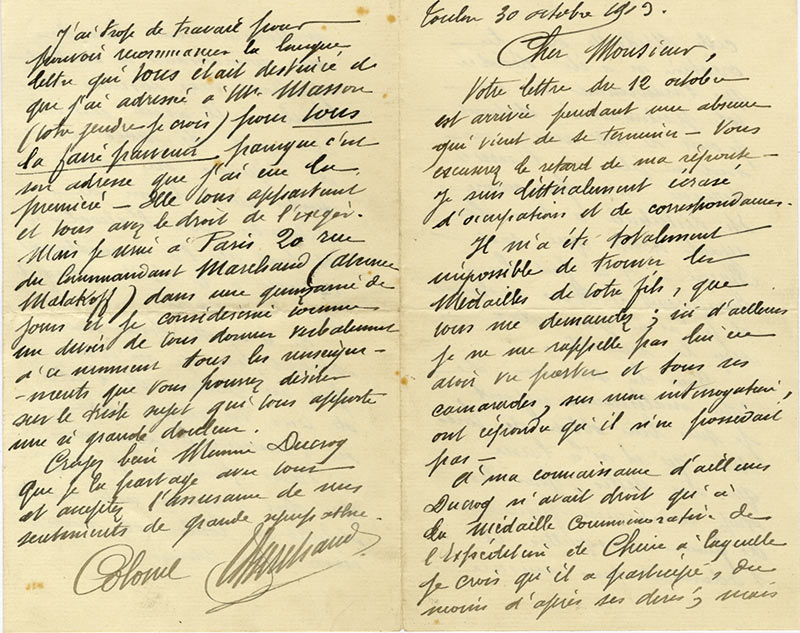 Toulon 30 octobre 1903.
Cher Monsieur,
Votre lettre du 12 octobre
est arrivée pendant une absence
qui vient de se terminer — Vous
excuserez le retard de ma réponse —
Je suis littéralement écrasé
d'occupations et de correspondances.
Il m'a été totalement
impossible de trouver les
Médailles de votre fils, que
vous me demandez ; ici d'ailleurs
je ne me rappelle pas lui en
avoir vu porter et tous ses
camarades, sur mon interrogation,
ont répondu qu'il n'en possédait
pas —
A ma connaissance d'ailleurs
Ducrocq n'avait droit qu'à
la Médaille Commémorative de
l'Expédition de Chine à laquelle
je crois qu'il a participé, du
moins d'après ses dires ; mais
J'ai trop de travail pour
pouvoir recommencer la longue
lettre qui vous était destinée et
que j'ai adressée à Mr Masson
(votre gendre je crois) pour vous
la faire parvenir, parce que c'est
son adresse que j'ai eue la
première — Elle vous appartient
et vous avez le droit de l'exiger.
Mais je serai à Paris 20 rue
du Commandant Marchand (avenue
Malakoff) dans une quinzaine de
jours et je considérerai comme
un devoir de vous donner verbalement
à ce moment tous les renseigne-
-ments que vous pouvez désirer
sur le triste sujet qui vous apporte
une si grande douleur.
Croyez bien Monsieur Ducrocq
que je la partage avec vous
et acceptez l'assurance de mes
sentiments de grande sympathie.
Colonel Marchand